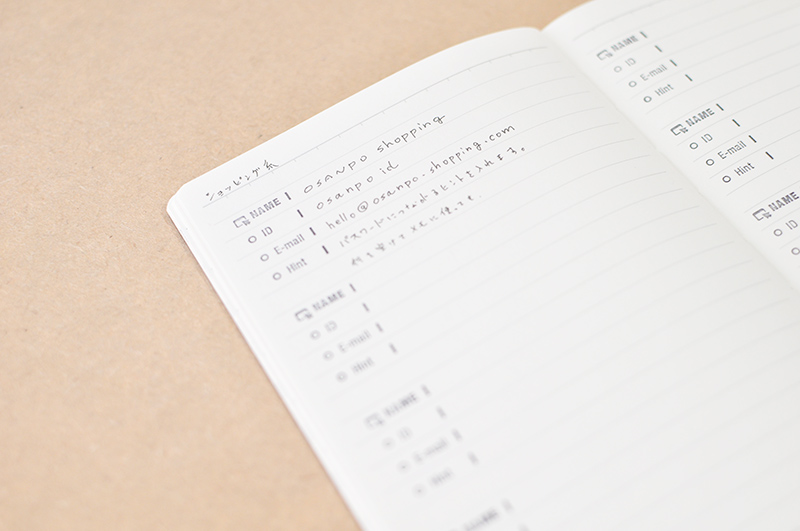 ショッピング系
NAME | osanpo shopping
ID | osanpo id
E-mail | hello@osanpo.shopping.com
Hint | パスワードにつながるヒントを入れます。
行を空けてメモに使っても。
NAME |
ID |
E-mail |
Hint |
NAME |
ID |
E-mail |
Hint |
NAME |
NAME |
ID |
E-mail |
Hint |
NAME |
ID |
E-mail |
Hint |
NAME
ID